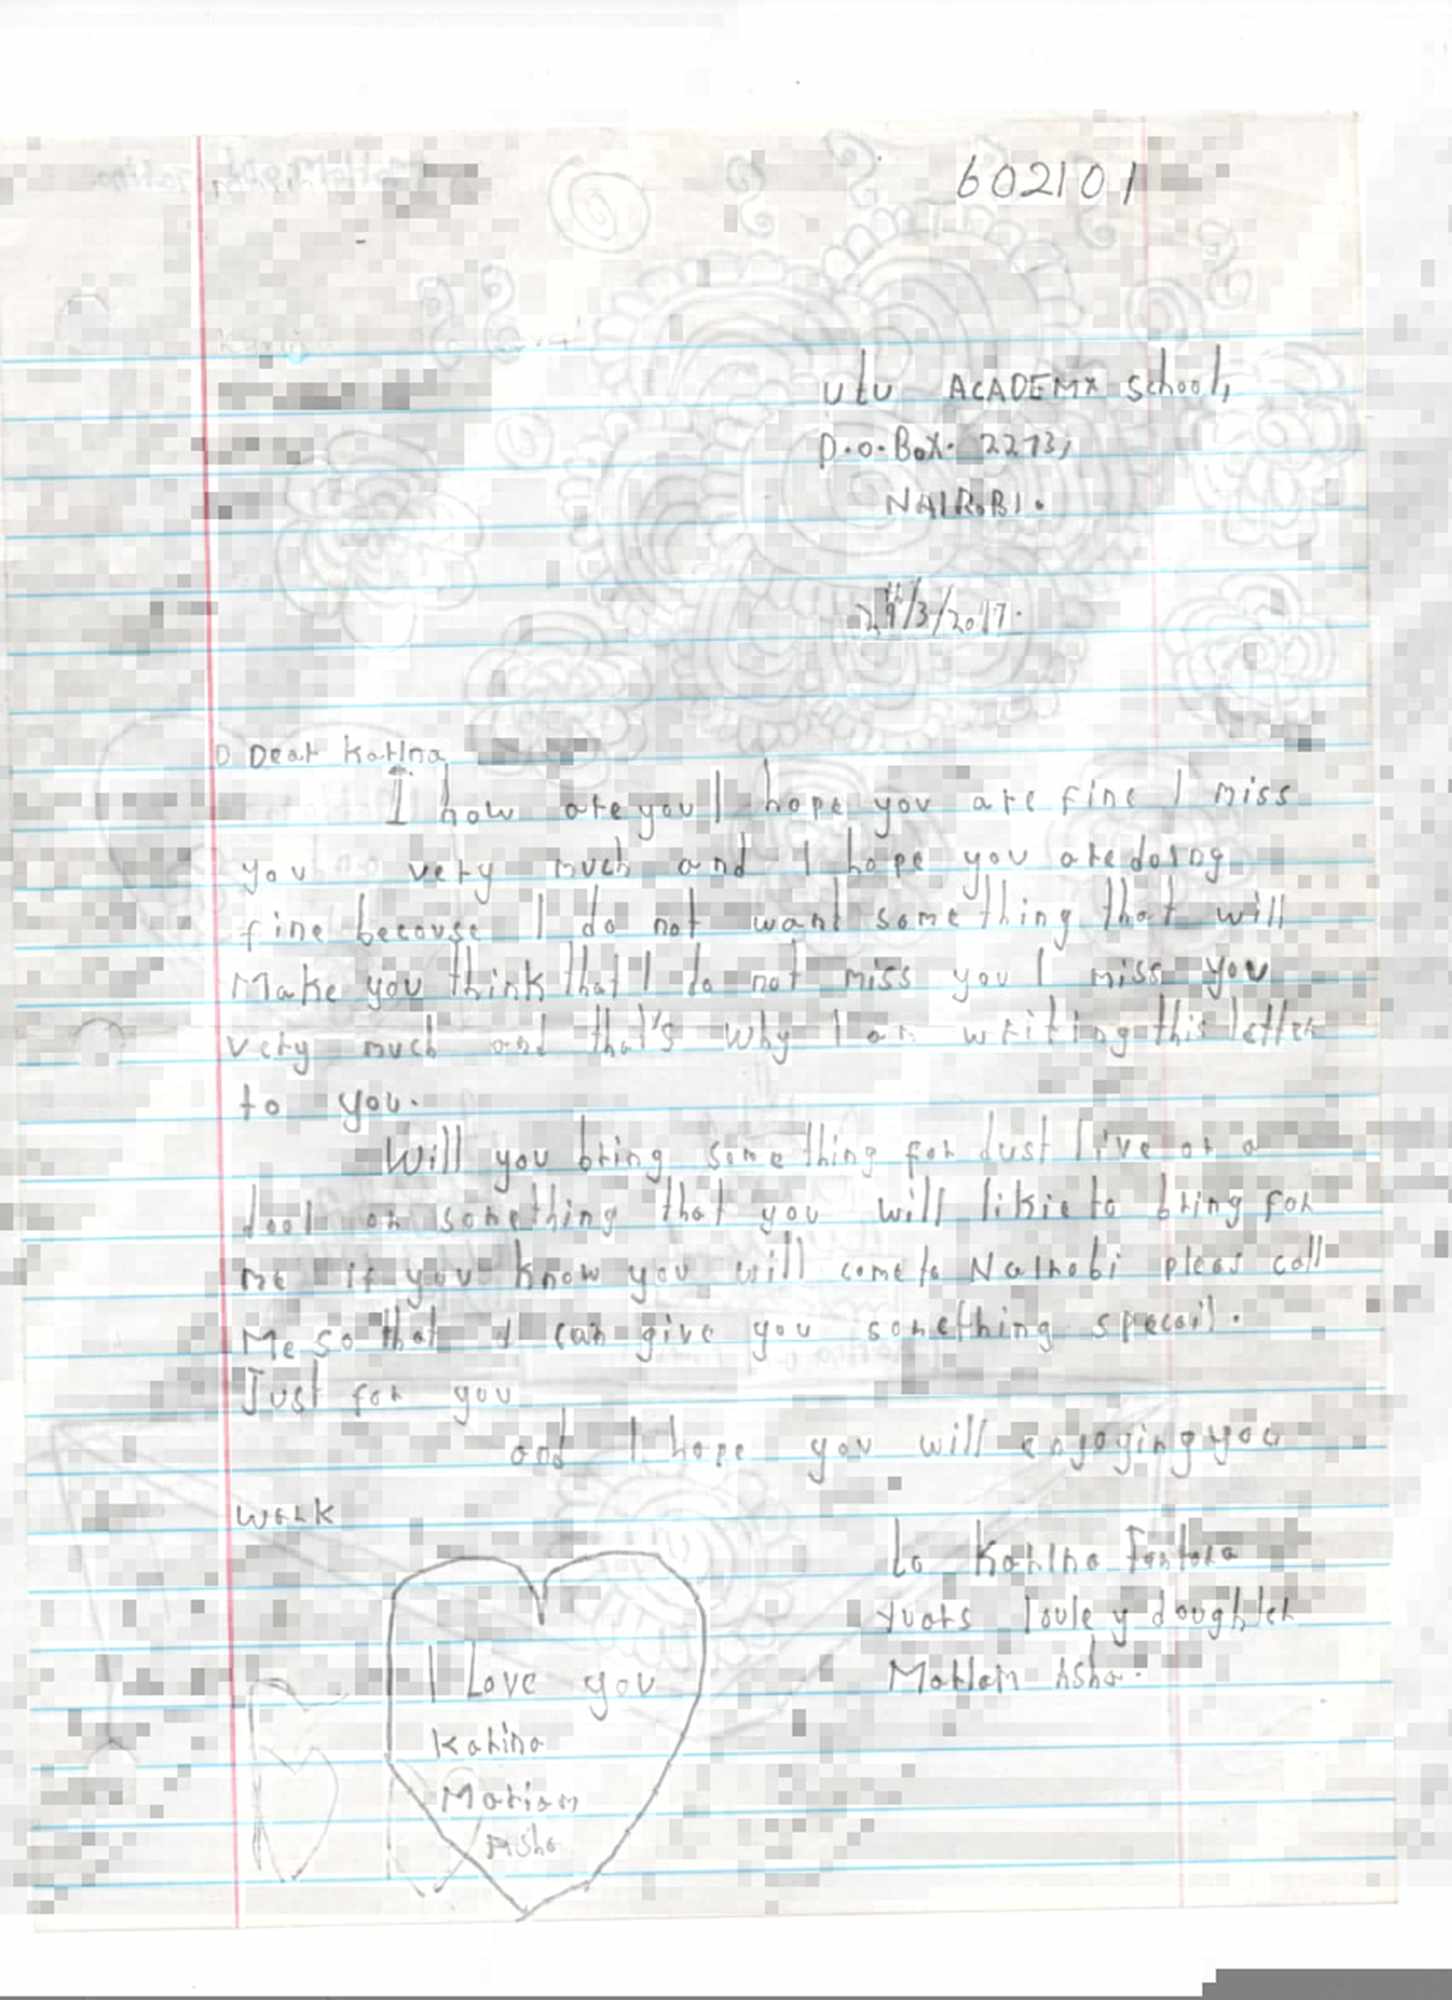 602101
utu ACADEMY School,
P.O.Box. 2273,
NAIROBI.
29th/3/2017.
Dear Karina
I how are you I hope you are fine I miss
you very much and I hope you are doing
fine because I do not want something that will
Make you think that I do not miss you I miss you
very much and that's why I am writing this letter
to you.
Will you bring something for Just live or a
dool or something that you will likie to bring for
me if you know you will come to Nairobi pleas call
Me so that I can give you something specail.
Just for you
and I hope you will enjoging you
Walk
to Karina
yuors louley doughter
Mariam Asha.
I Love you
Karina
Mariam
Asha